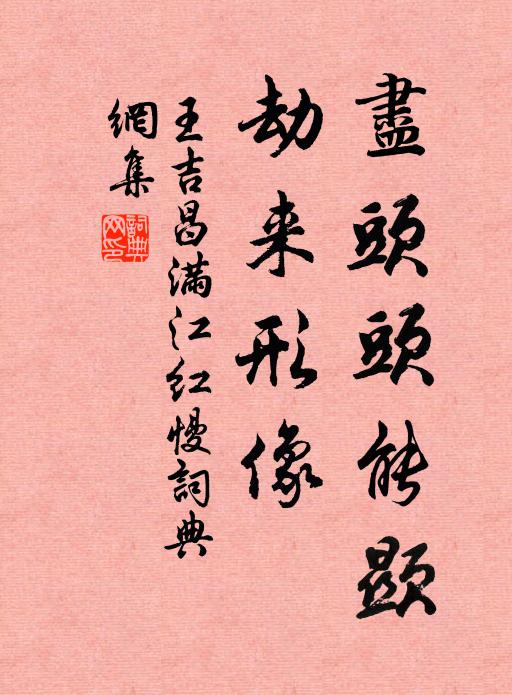 盡頭頭能顯
劫来形像
王吉昌滿江红慢詞典
網集
詞典网印